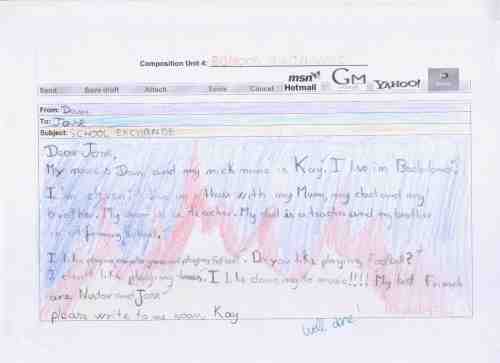 Composition Unit 4: SCHOOL EXCHANGE
msn Hotmail GM YAHOO!
Send Save draft Attach Tools Cancel
From: Dani
To: Jose
Subject: SCHOOL EXCHANGE
Dear Jose,
My name is Dani and my nick name is Kay. I live in
I'm eleven. I live in a with my Mum, my dad and my
brother. My mum is a teacher. My dad is a teacher and my brother
is at primary school.
I like playing and playing football. Do you like playing football?
I don't like playing tennis. I like dancing to music!!!! My best friends
are Nestor and Jose
please write to me soon, Kay
Well done!